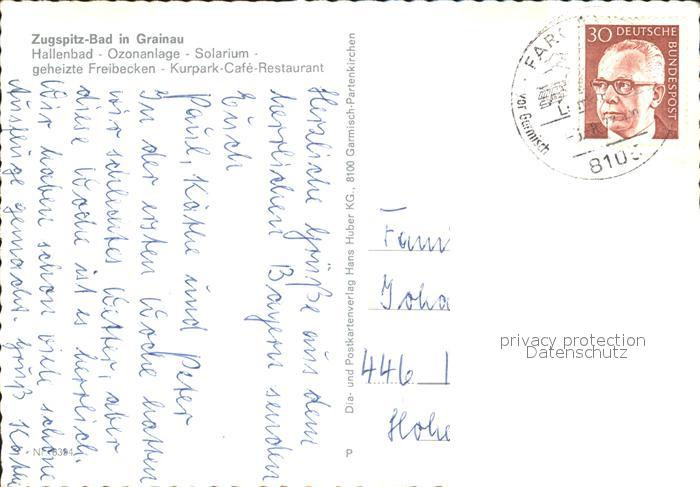 Zugspitz-Bad in Grainau
Hallenbad - Ozonanlage - Solarium -
geheizte Freibecken - Kurpark-Café-Restaurant
Herzliche Grüße aus dem
herrlichen Bayern senden
Euch
Paul, Käthe und Peter
In der ersten Woche hatten
wir schlechtes Wetter, aber
diese Woche ist es herrlich.
Wir haben schon viele schöne
Ausflüge gemacht. Gruß Käthe
Nr. 8394
Dia- und Postkartenverlag Hans Huber KG., 8100 Garmisch-Partenkirchen
P
30 DEUTSCHE
BUNDESPOST
FARC
vor Garmisch
8105
Fami
Joha
446
Hohe
privacy protection
Datenschutz